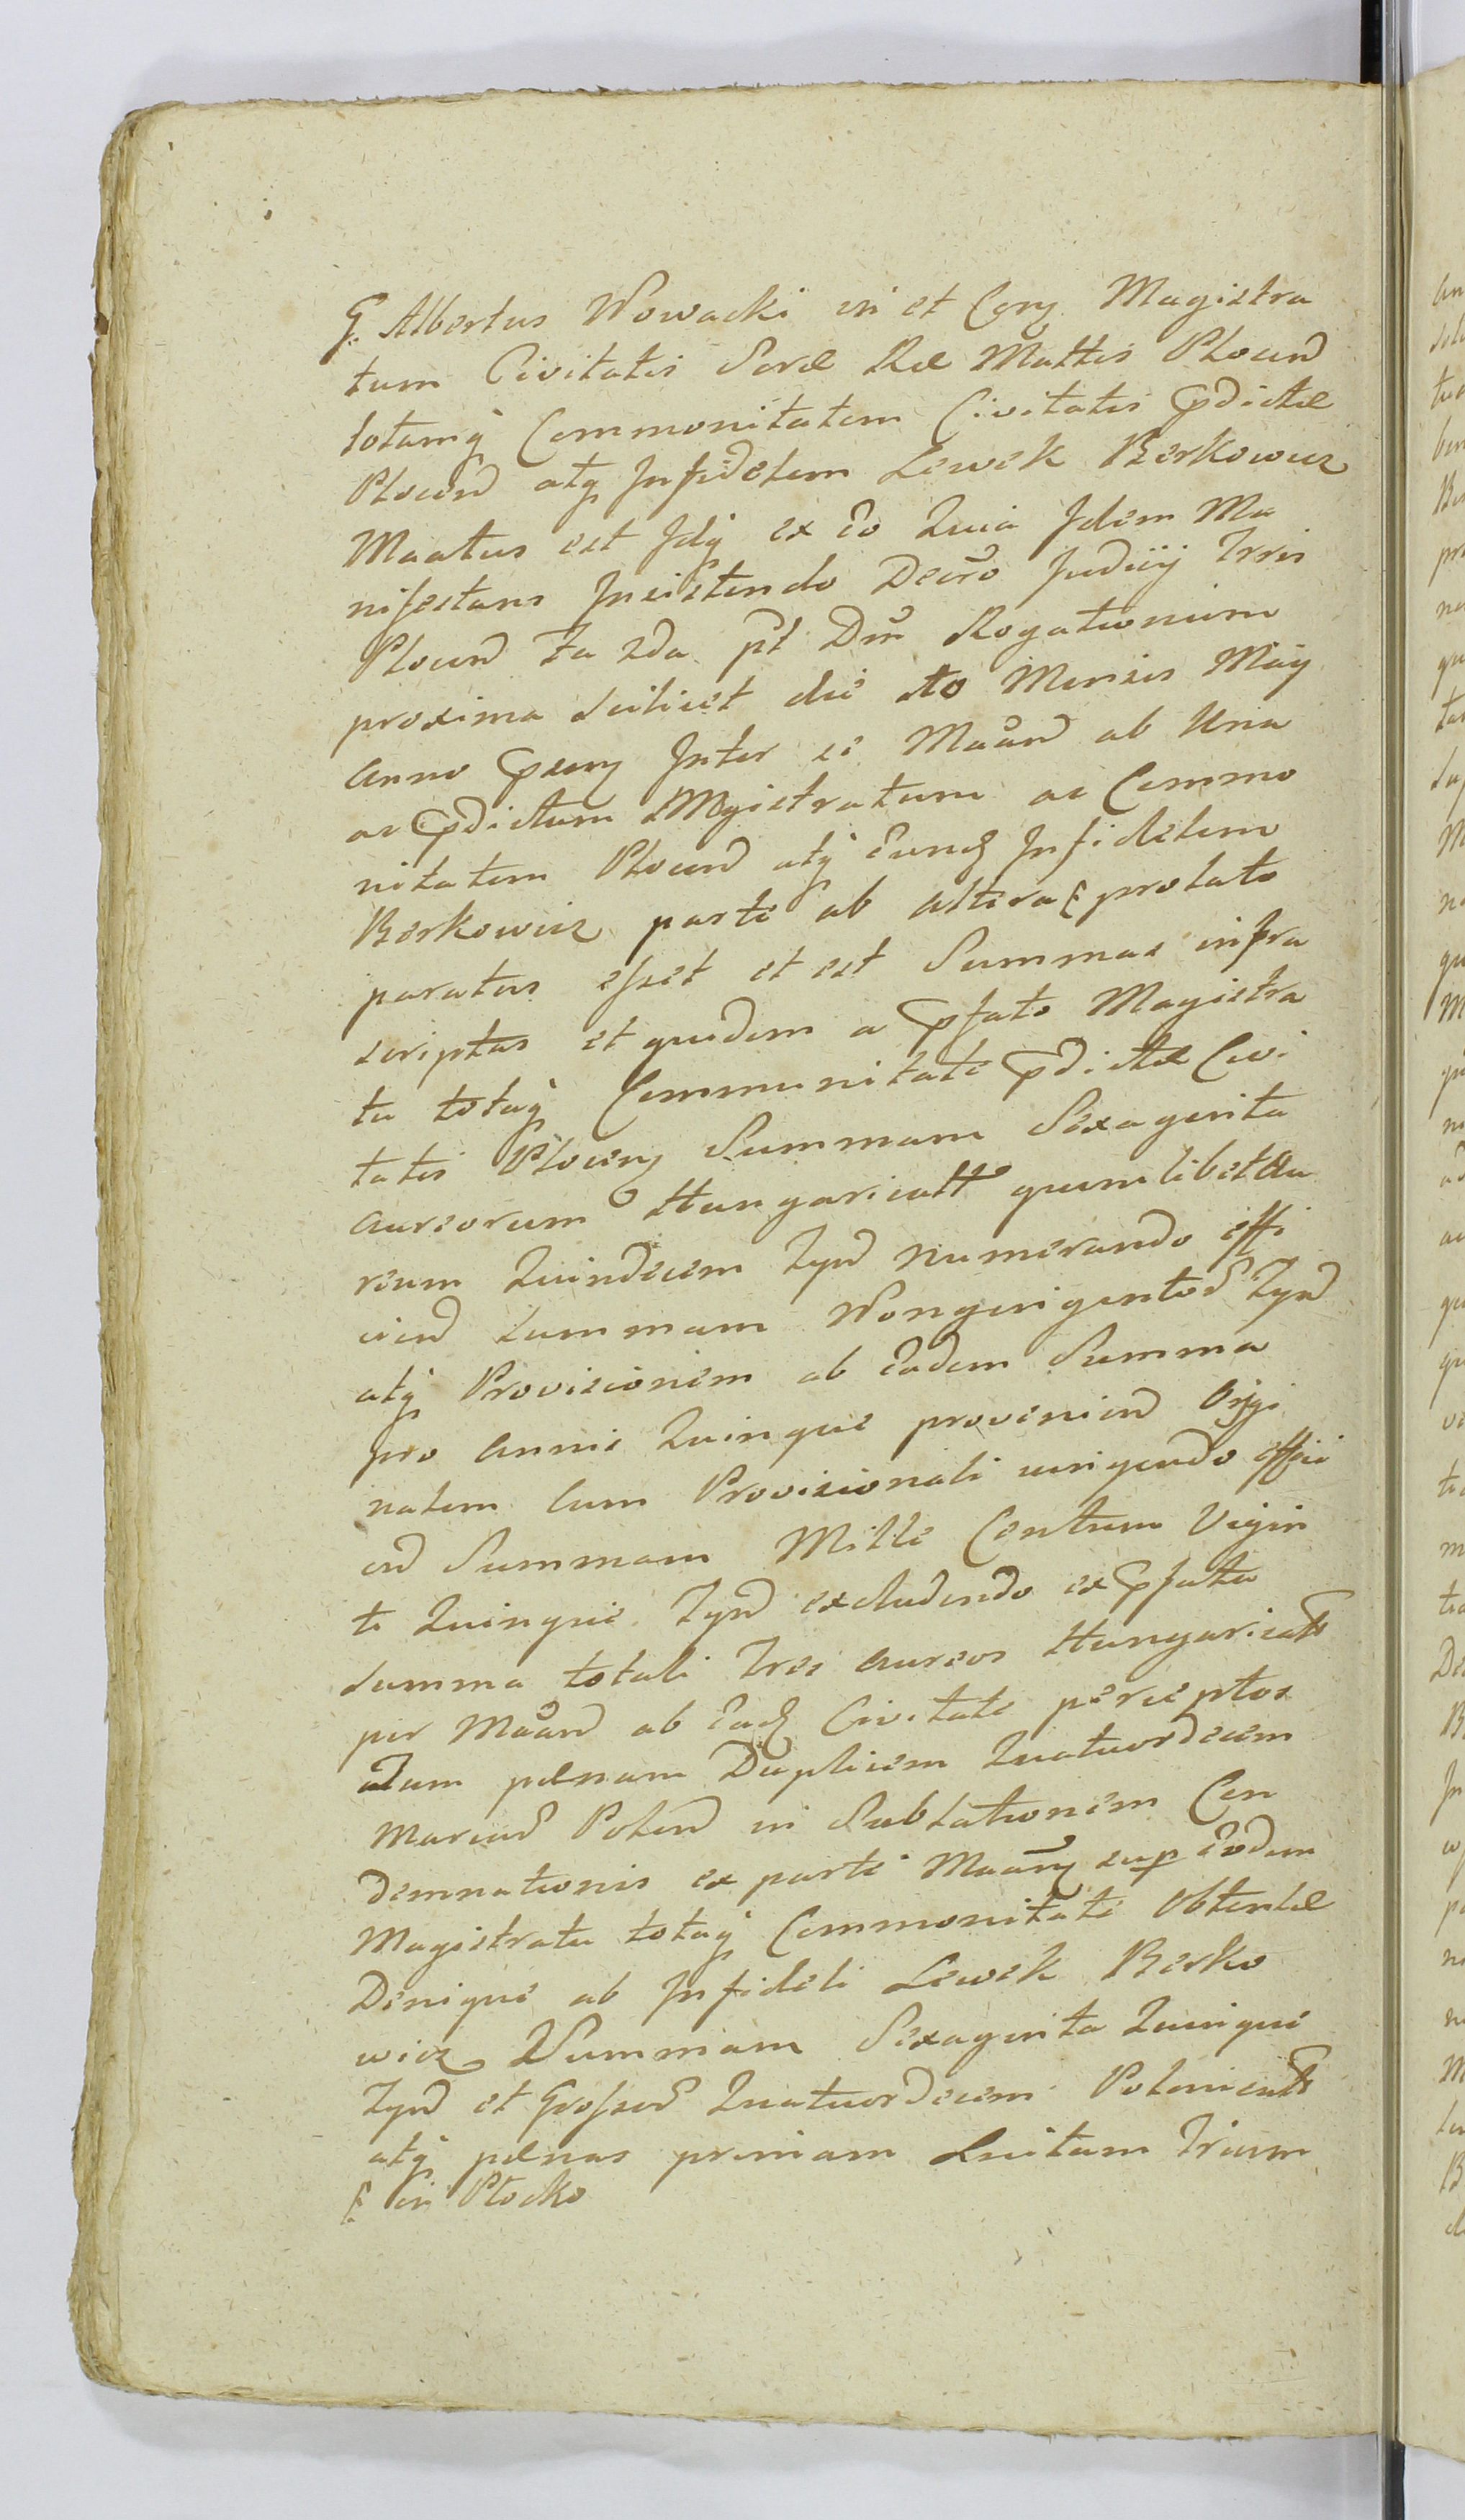 G. Albertus Nowacki in et Cony Magistra
tum Civitatis Sacræ Ræ Mattis Plocen
totamq Commonitatem Civitatis Pdictæ
Plocen atq Infidelem Lewek Berkowicz
Maatus est Idq ex Eo Quia Idem Ma
nifestans Insistendo Decro Judicij Trris
Plocen Fa 2da pt Dm Rogationum
proxima scilicet die 10 Mensis Maij
Anno Pseny Inter se Maan ab Una
ac Pdictum Magistratum ac Commo
nitatem Plocen atq Eund Infidelem
Berkowicz parte ab altera prolato
paratus esset et est Summas infra
scriptas et quidem a Pfato Magistra
tu totaq Communitate Pdictæ Civi
tatis Ploceny Summam Sexaginta
Aureorum Hungaricalt quemlibet Au
reum Quindecem Zyn numerando effi
cien summam Nongingentos Zyn
atq Provisionem ab Eadem Summa
pro Annis Quinque provenien Origi
nalem Cum Provisionali iungendo effici
en Summam Mille Centum Vigin
ti Quinque Zyn excludendo ex Pfata
summa totali Tres Aureos Hungaricals
per Maan ab Ead Civitate perceptos
Tum pænam Duplicem Quatuordecem
Marcar Polen in Sublationem Con
demnationis ex parte Maany sup Eodem
Magistratu totaq Commonitate Obtentæ
Denique ab Infideli Lewek Berko
wicz Summam Sexaginta Quinque
Zyn et Grossos Quatuordecem Polonicals
atq pænas primam Luitam Trium
in Plocko